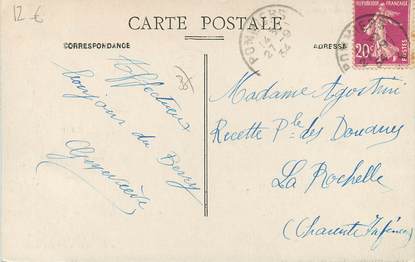 12 €
CARTE POSTALE
CORRESPONDANCE
ADRESSE
REPUBLIQUE FRANÇAISE
20c
14 35
27-9
34
Affectueux
bonjour du Berry
Geneviève
Madame Agostini
Recette Ple des Douanes
La Rochelle
(Charente Infére)